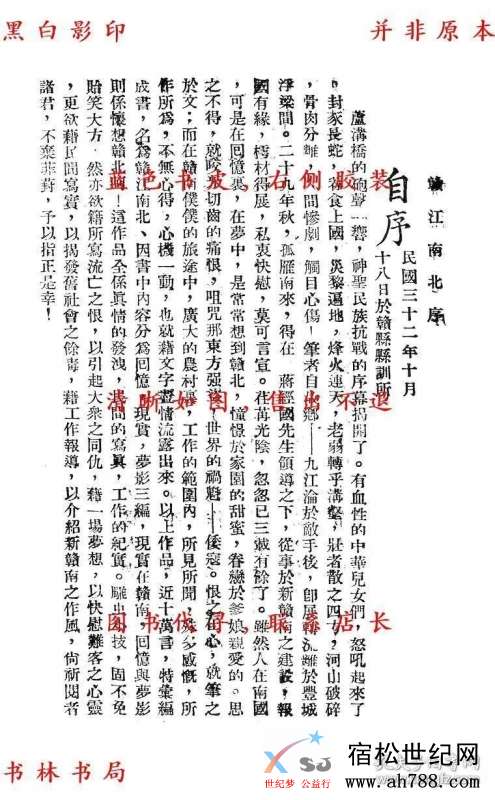 黑白影印
并非原本
贛江南北序
自序
民國三十二年十月
十八日於贛縣縣訓所
蘆溝橋的砲聲一響，神聖民族抗戰的序幕揭開了。有血性的中華兒女們，怒吼起來了
，封家長蛇，荐食上國，災黎遍地，烽火連天，老弱轉乎溝壑，壯者散之四方，河山破碎
，骨肉分離，人間慘劇，觸目心傷！筆者自鄉——九江淪於敵手後，卽展轉流離於豐城
浮梁間。二十九年秋，孤雁南來，得在 蔣經國先生領導之下，從事於新贛南之建設，報
國有緣，樗材得展，私衷快慰，莫可言宣。荏苒光陰，忽忽已三載有餘了。雖然人在南國
，可是在回憶裏，在夢中，是常常想到贛北，憧憬於家園的甜蜜，眷戀於爹娘親愛的。思
之不得，就咬牙切齒的痛恨，咀咒那東方强盜——世界的禍魁——倭寇。恨之在心，就筆之
於文；而在贛南僕僕的旅途中，廣大的農村裏，工作的範圍內，所見所聞，殊多感慨，所
作所爲，不無心得，心機一動，也就藉文字盡情流露出來。以上作品，近十萬言，特彙編
成書，名爲贛江南北、因書中內容分爲回憶，現實，夢影三編，現實在贛南，回憶與夢影
則係懷想贛北——！這作品全係眞情的發洩，民間的寫眞，工作的紀實。雕虫小技，固不免
貽笑大方，然亦欲籍所寫流亡之恨，以引起大衆之同仇，藉一場夢想，以快慰難客之心靈
，更欲藉民間寫實，以揭發舊社會之餘毒，藉工作報導，以介紹新贛南之作風，尙祈閱者
諸君，不棄葑菲，予以指正是幸！
蓝色书皮，右侧胶装
清晰如图，售出不退
图书代寻，联系店长
书林书局
SJ
世纪梦 公益行
宿松世纪网
www.ah788.com